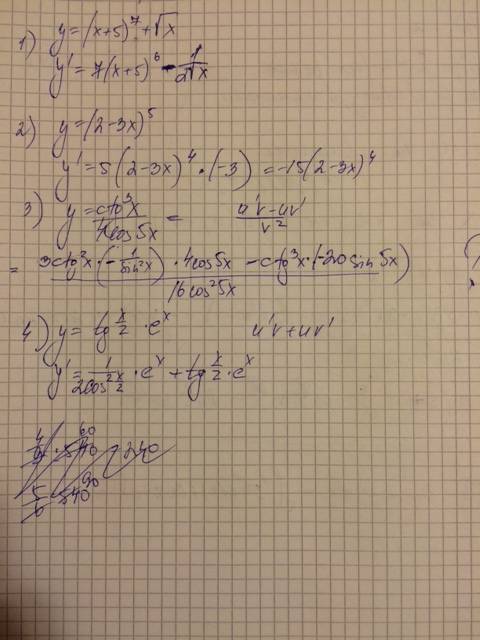 1) y=(x+5)^7+√x
y'=7(x+5)^6 - 1/(2√x)
2) y=(2-3x)^5
y'=5(2-3x)^4·(-3)=-15(2-3x)^4
3) y=ctg^3x/(4cos5x)= (u'v-uv')/v^2
= (3ctg^2x·(-1/(sin^2x))·4cos5x-ctg^3x·(-20sin5x))/(16cos^25x)
4) y=tg x/2·e^x u'v+uv'
y'=1/(2cos^2 x/2)·e^x+tg x/2·e^x